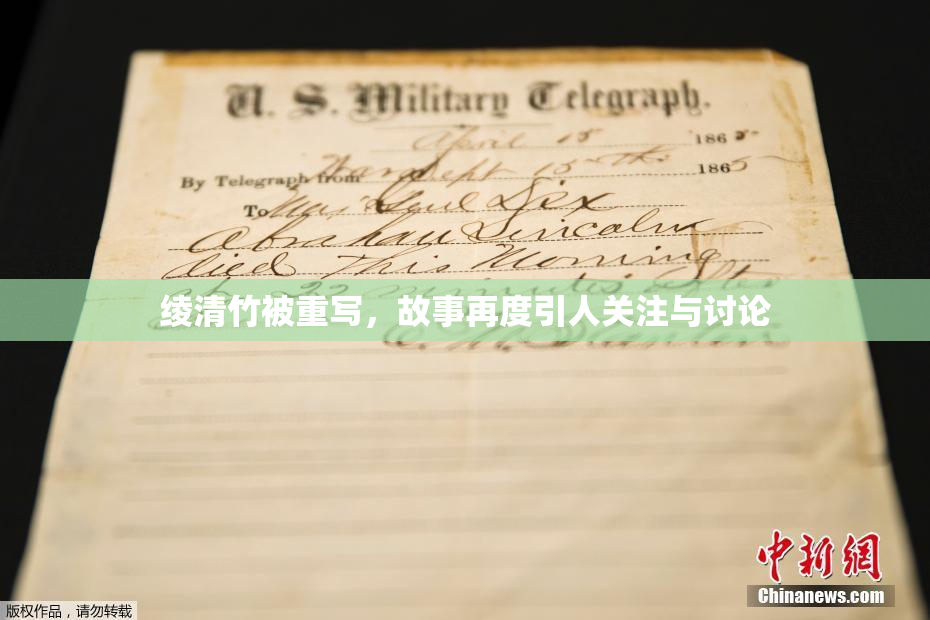 U. S. Military Telegraph.
April 15 1865
By Telegraph from War Dept 15th 1865
To Maj Genl Dix
Abraham Lincoln
died This Morning
at 22 minutes after
绫清竹被重写，故事再度引人关注与讨论
E. M. Stanton
中新网
Chinanews.com
版权作品，请勿转载